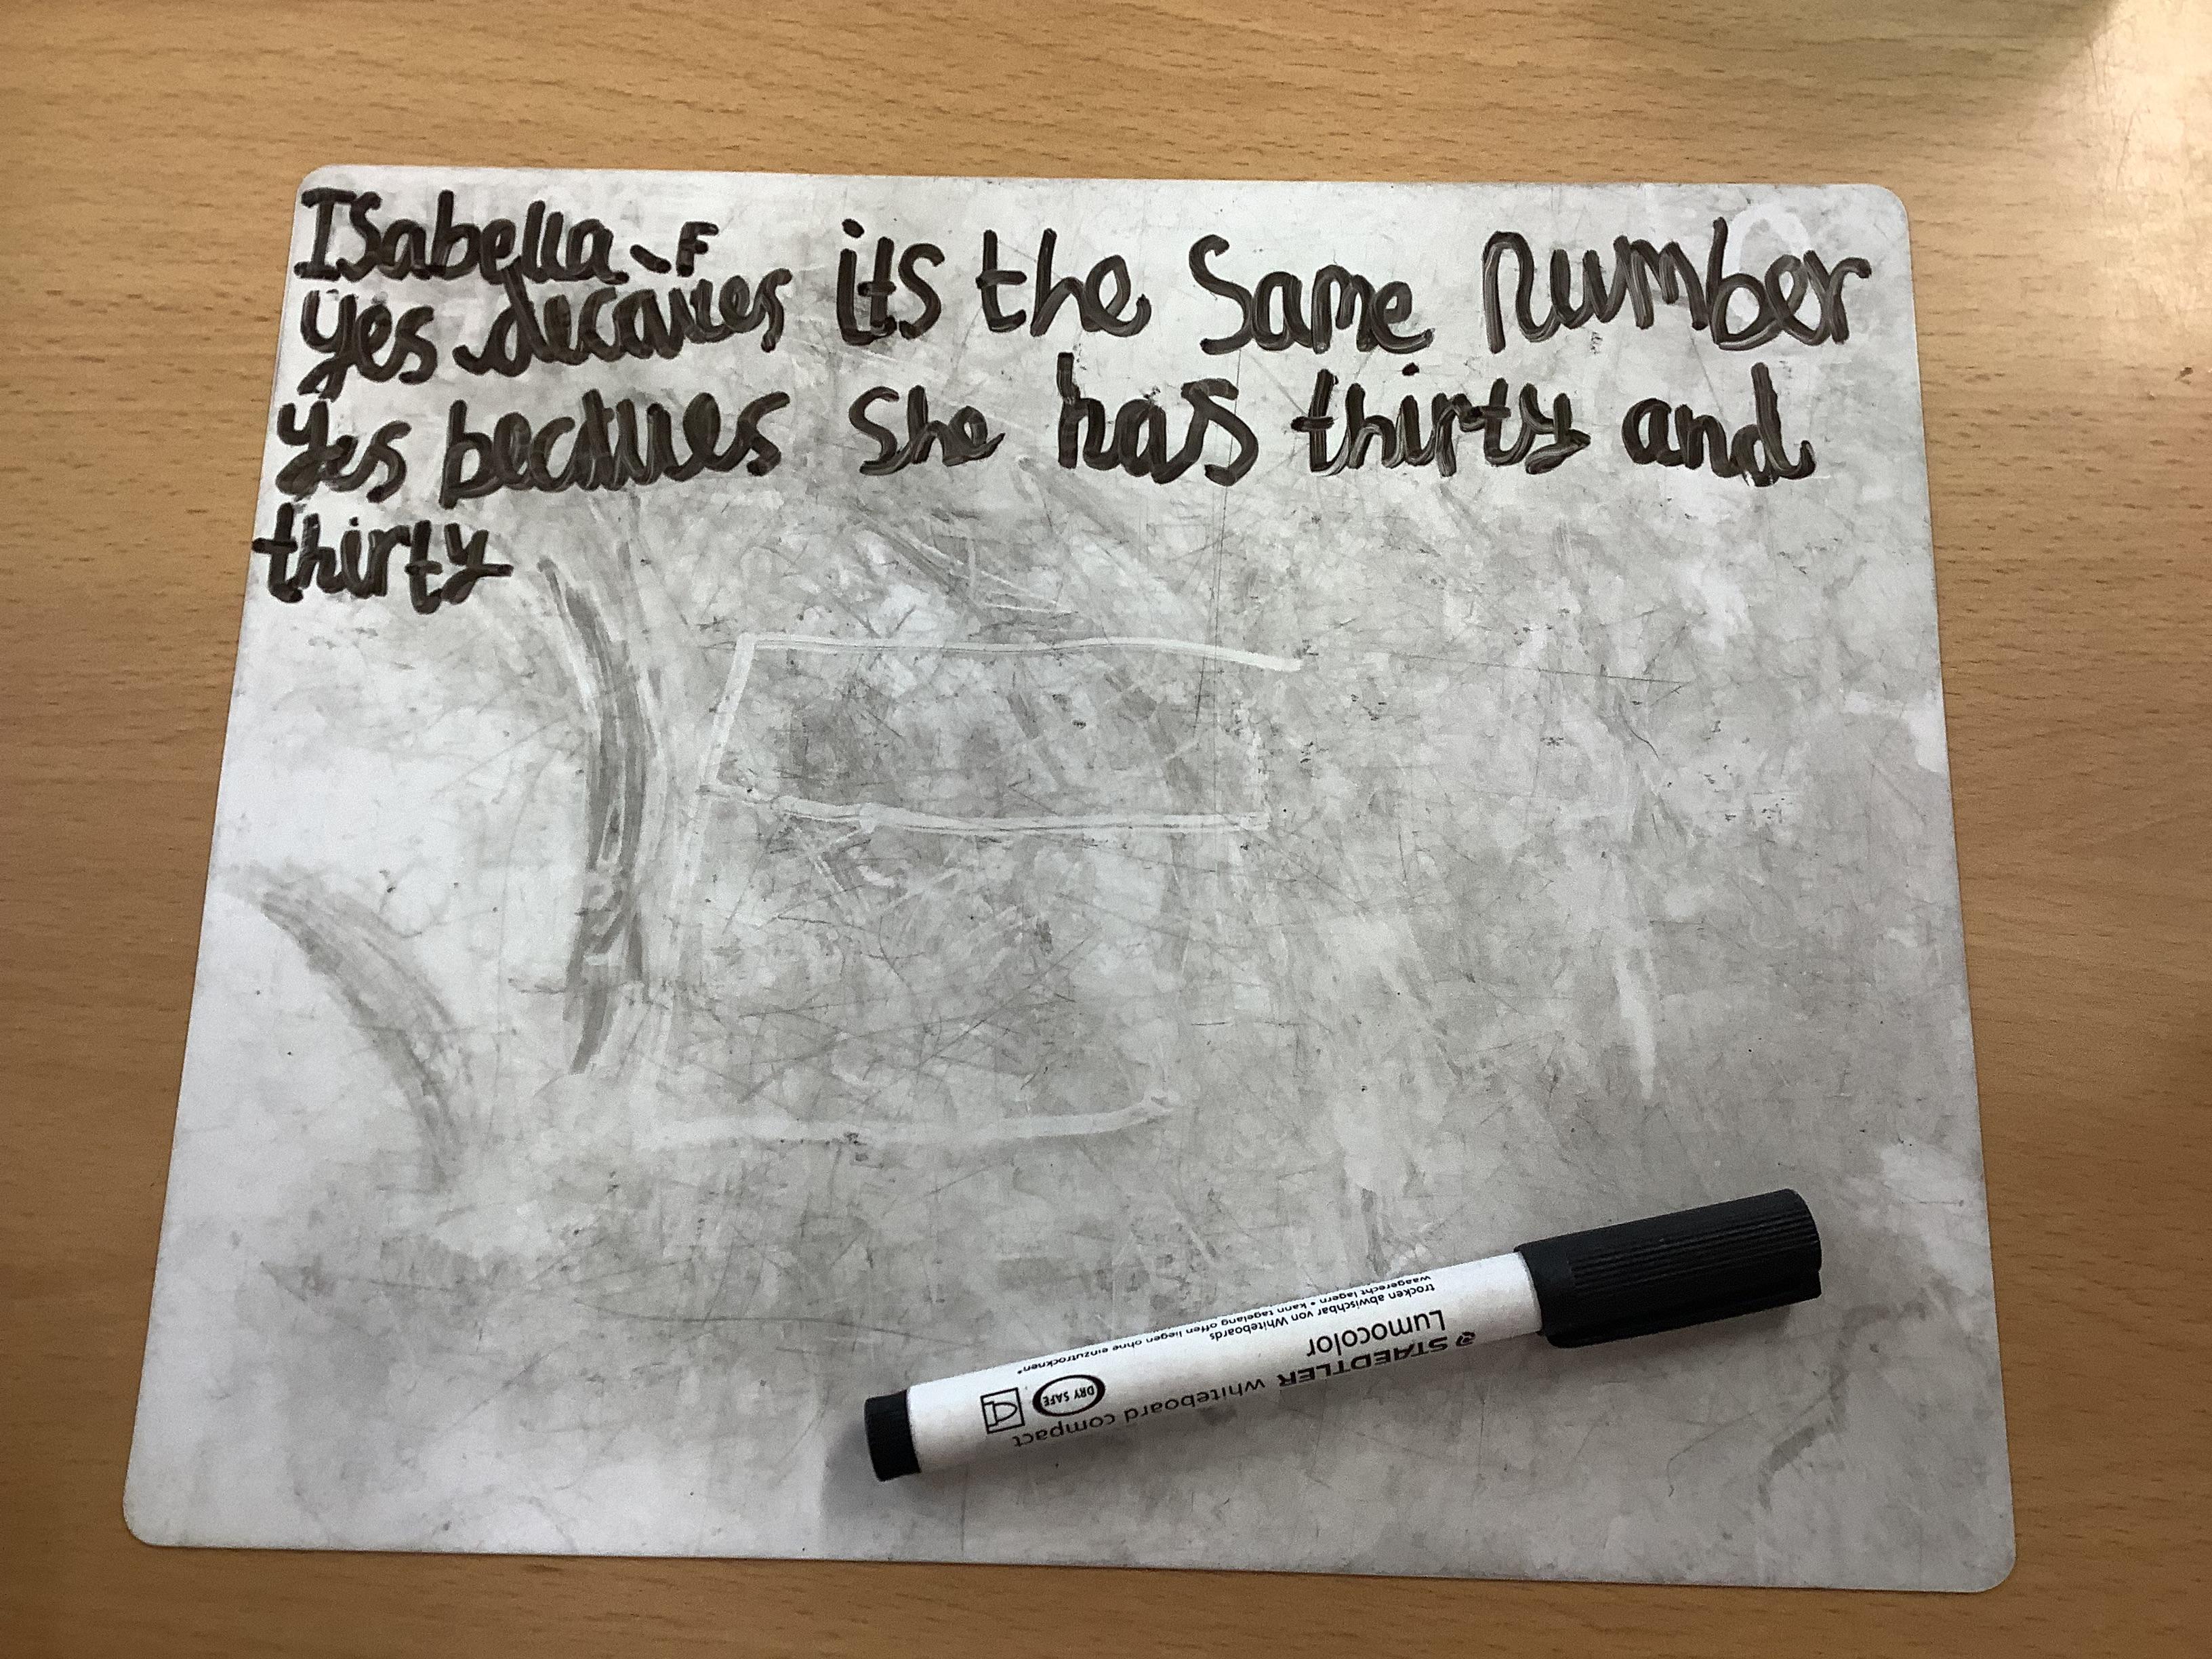 Isabella.F
yes decaues its the Same number
Yes becaues She has thirty and
thirty
STAEDTLER whiteboard compact
Lumocolor
trocken abwischbar von Whiteboards
waagerecht lagern • kann tagelang offen liegen ohne einzutrocknen*
DRY SAFE